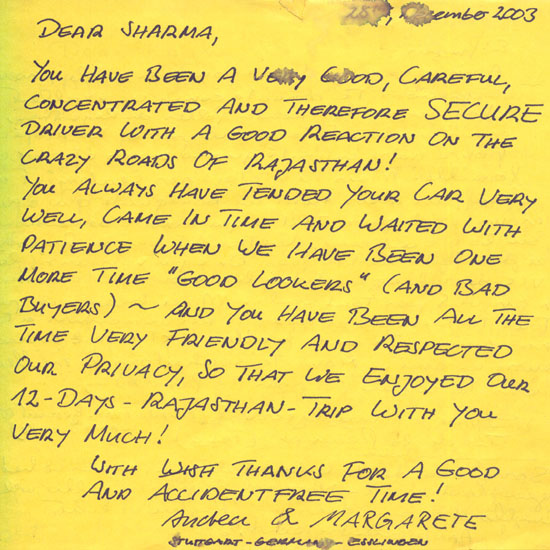 25th, December 2003
DEAR SHARMA,
YOU HAVE BEEN A VERY GOOD, CAREFUL,
CONCENTRATED AND THEREFORE SECURE
DRIVER WITH A GOOD REACTION ON THE
CRAZY ROADS OF RAJASTHAN!
YOU ALWAYS HAVE TENDED YOUR CAR VERY
WELL, CAME IN TIME AND WAITED WITH
PATIENCE WHEN WE HAVE BEEN ONE
MORE TIME "GOOD LOOKERS" (AND BAD
BUYERS) ~ AND YOU HAVE BEEN ALL THE
TIME VERY FRIENDLY AND RESPECTED
OUR PRIVACY, SO THAT WE ENJOYED OUR
12-DAYS-RAJASTHAN-TRIP WITH YOU
VERY MUCH!
WITH WISH THANKS FOR A GOOD
AND ACCIDENTFREE TIME!
& MARGARETE
STUTTGART - GERMANY - ESSLINGEN